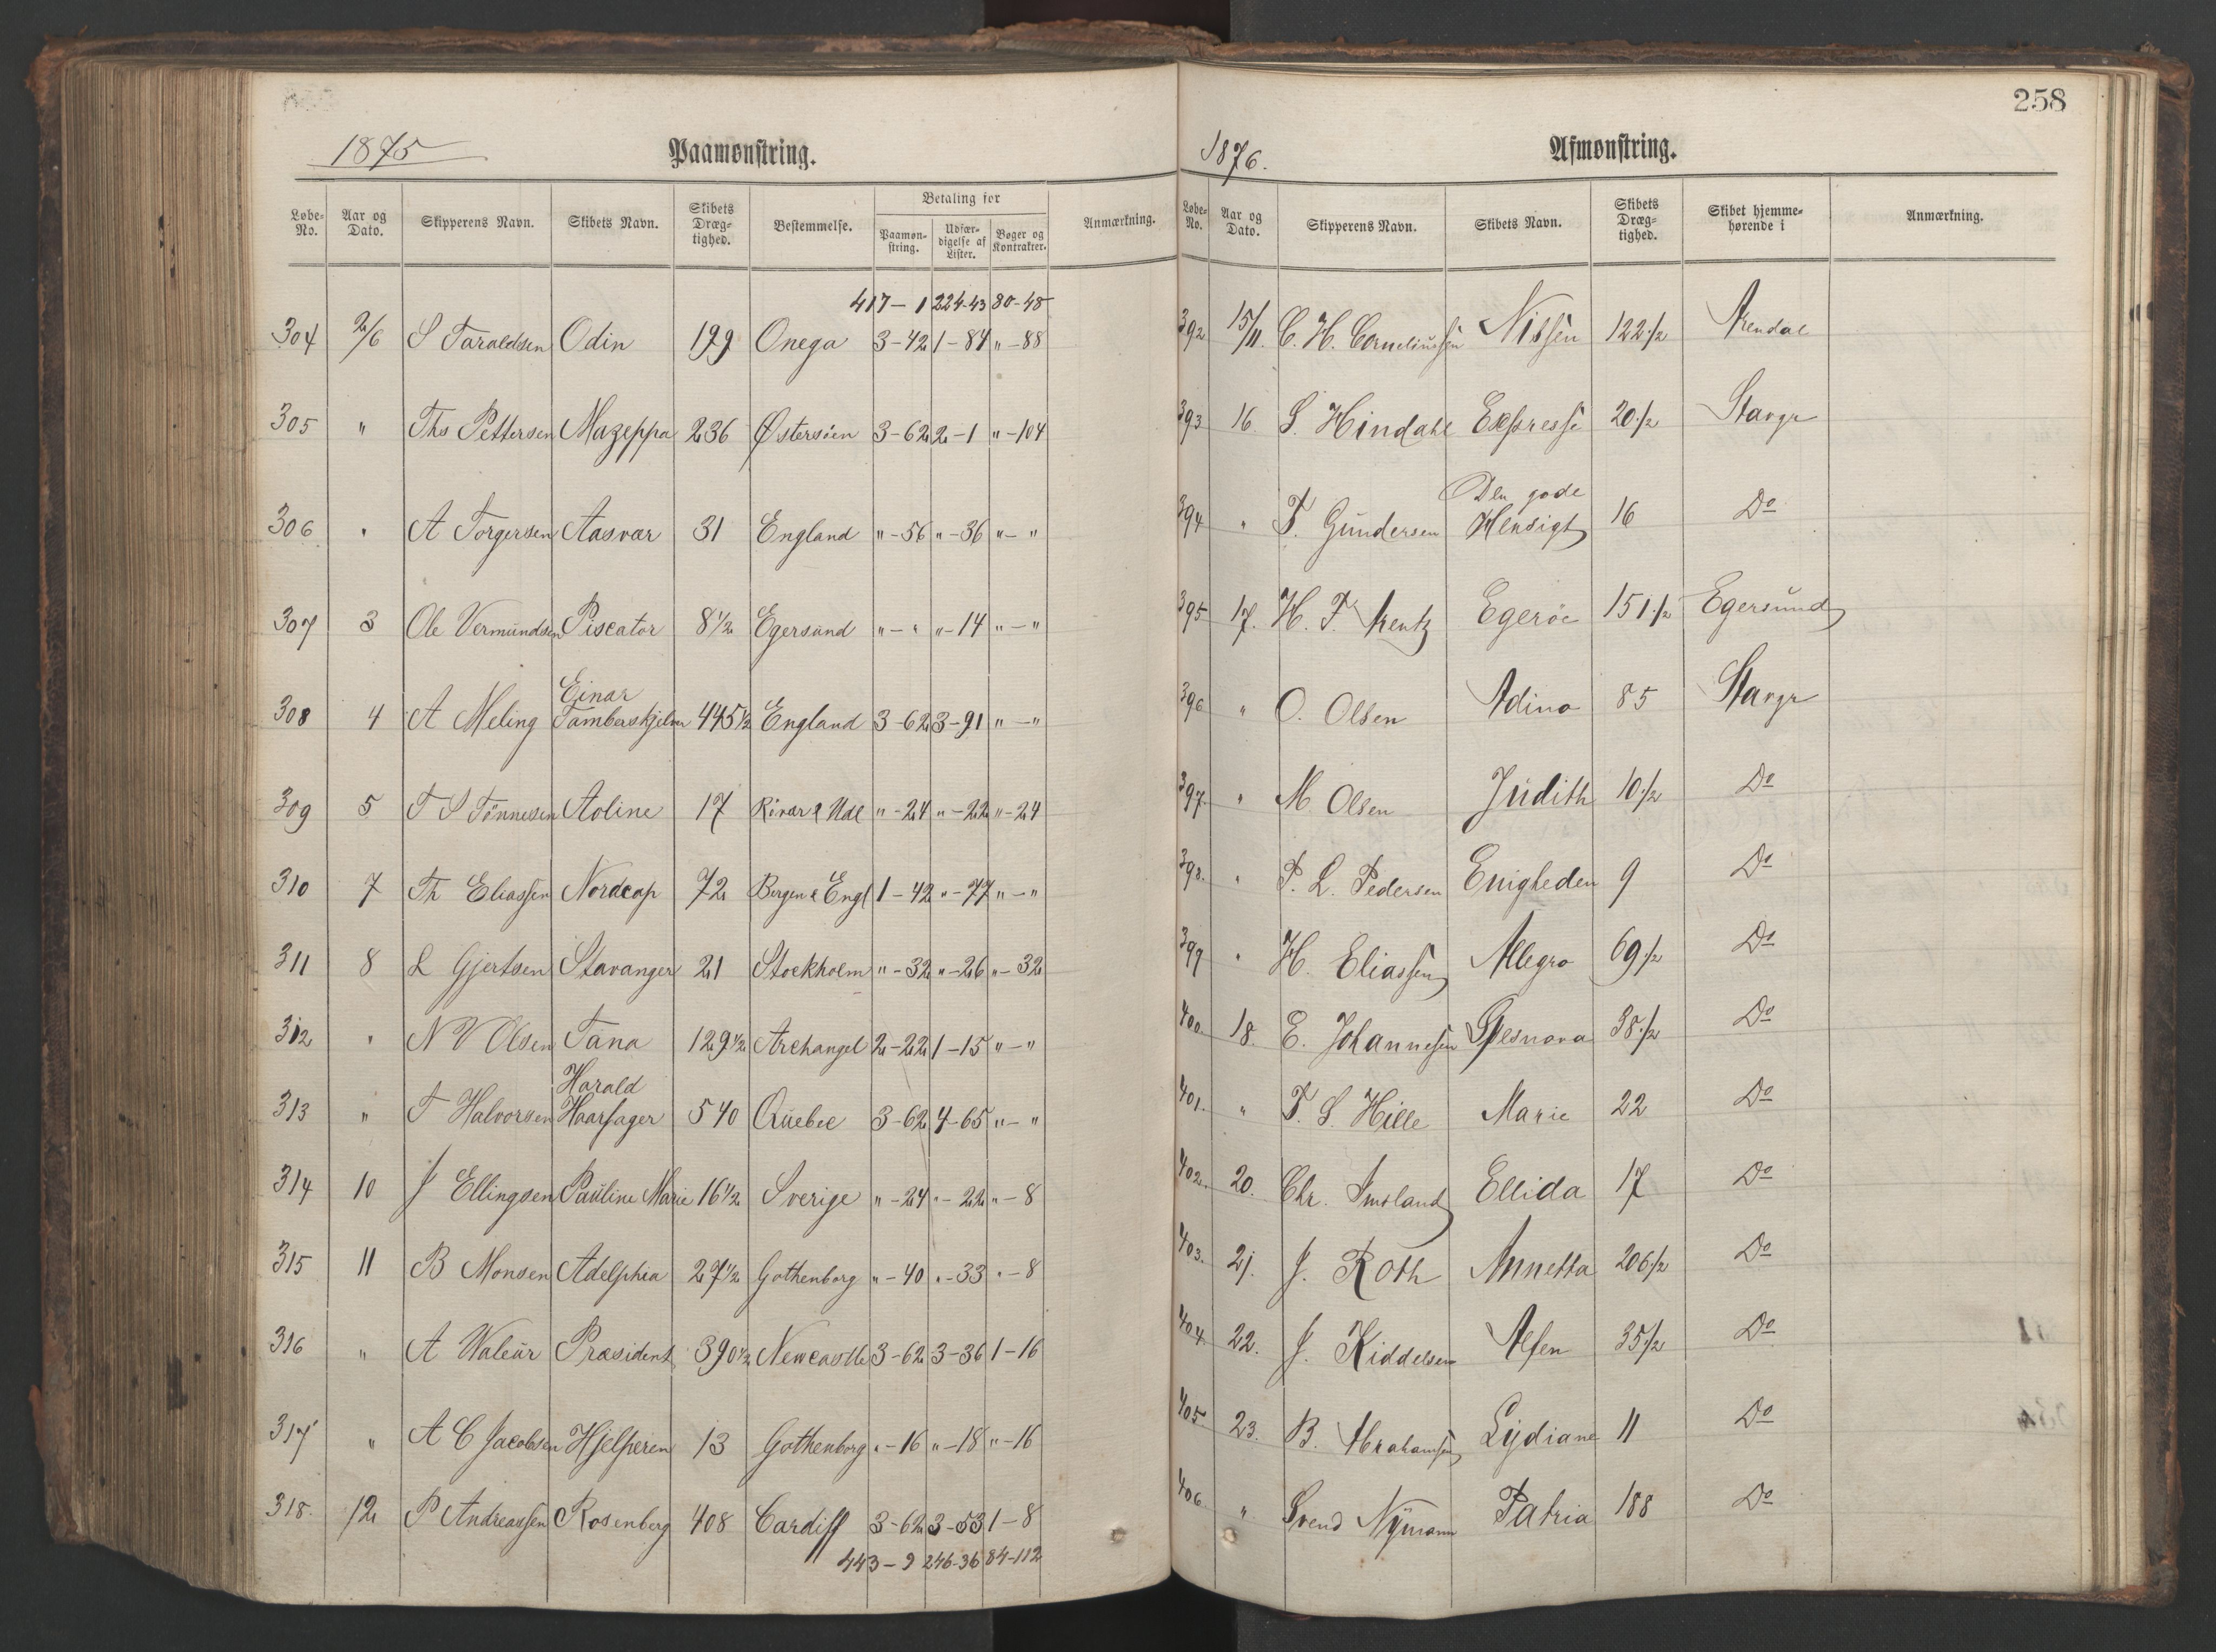 258
1875 Paamønstring.
Løbe-No. Aar og Dato. Skipperens Navn. Skibets Navn. Skibets Dræg-tighed. Bestemmelse. Betaling for Paamøn-string. Udfær-digelse af Lister. Bøger og Kontrakter. Anmærkning.
417-1 224-43 80-48
304 2/6 S Taraldsen Odin 199 Onega 3-42 1-84 "-88
305 " Ths Pettersen Mazeppa 236 Østersöen 3-62 2-1 "-104
306 " A Torgersen Aasvær 31 England "-56 "-36 "-"
307 3 Ole Vermundsen Piscator 8 1/2 Egersund "-" "-14 "-"
308 4 A Meling Einar Tamberskjelver 445 1/2 England 3-62 3-91 "-"
309 5 T S Tönnesen Aoline 17 Rövær & Udl "-24 "-22 "-24
310 7 Th Eliassen Nordcap 72 Bergen & Engl 1-42 "-77 "-"
311 8 L Gjertsen Stavanger 21 Stockholm "-32 "-26 "-32
312 " N V Olsen Tana 129 1/2 Archangel 2-22 1-15 "-"
313 " T Halvorsen Harald Haarfager 540 Quebec 3-62 4-65 "-"
314 10 J Ellingsen Pauline Marie 16 1/2 Sverige "-24 "-22 "-8
315 11 B Monsen Adelphia 27 1/2 Gothenborg "-40 "-33 "-8
316 " A Waleur Præsident 390 1/2 Newcastle 3-62 3-36 1-16
317 " A C Jacobsen Hjelperen 13 Gothenborg "-16 "-18 "-16
318. 12 P Andreassen Rosenberg 408 Cardiff 3-62 3-53 1-8
443-9 246-36 84-112
1876. Afmønstring.
Løbe-No. Aar og Dato. Skipperens Navn. Skibets Navn. Skibets Dræg-tighed. Skibet hjemme-hørende i Anmærkning.
392 15/11. C. H. Corneliussen Nissen 122 1/2 Arendal
393 16. S. Hindahl Expresse 20 1/2 Stavgr
394 " T. Gundersen Den gode Hensigt 16 Do
395 17. H. F. Kentz Egeröe 151 1/2 Egersund
396 " O. Olsen Adino 85 Stavgr
397. " M. Olsen Judith 10 1/2 Do
398. " P. L. Pedersen Enigheden 9 Do
399 " H. Eliassen Allegro 69 1/2 Do
400. 18. E. Johannesen Spesnova 38 1/2 Do
401. " T. S. Hille Marie 22 Do
402. 20. Chr. Imsland Ellida 17 Do
403. 21. J. Roth Annetta 206 1/2 Do
404. 22. J. Kiddelsen Alfen 35 1/2 Do
405 23. B. Abrahamsen Lydiane 11 Do
406. " Svend Nÿmann Patria 188 Do